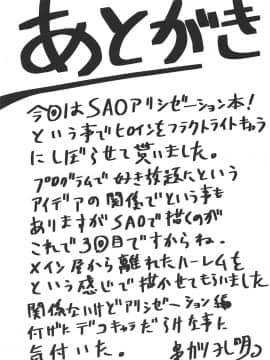 あとがき
今回はSAOアリシゼーション本!
という事でヒロインをフラクトライトキャラ
にしぼらせて貰いました。
プログラムで好き放題にという
アイデアの関係でという事も
ありますがSAOで描くのが
これで3回目ですからね。
メイン屋から離れたハーレムを
という感じで描かせてもらいました
関係ないけどアリシゼーション編
付けたデコキャラだらけな事に
気付いた。